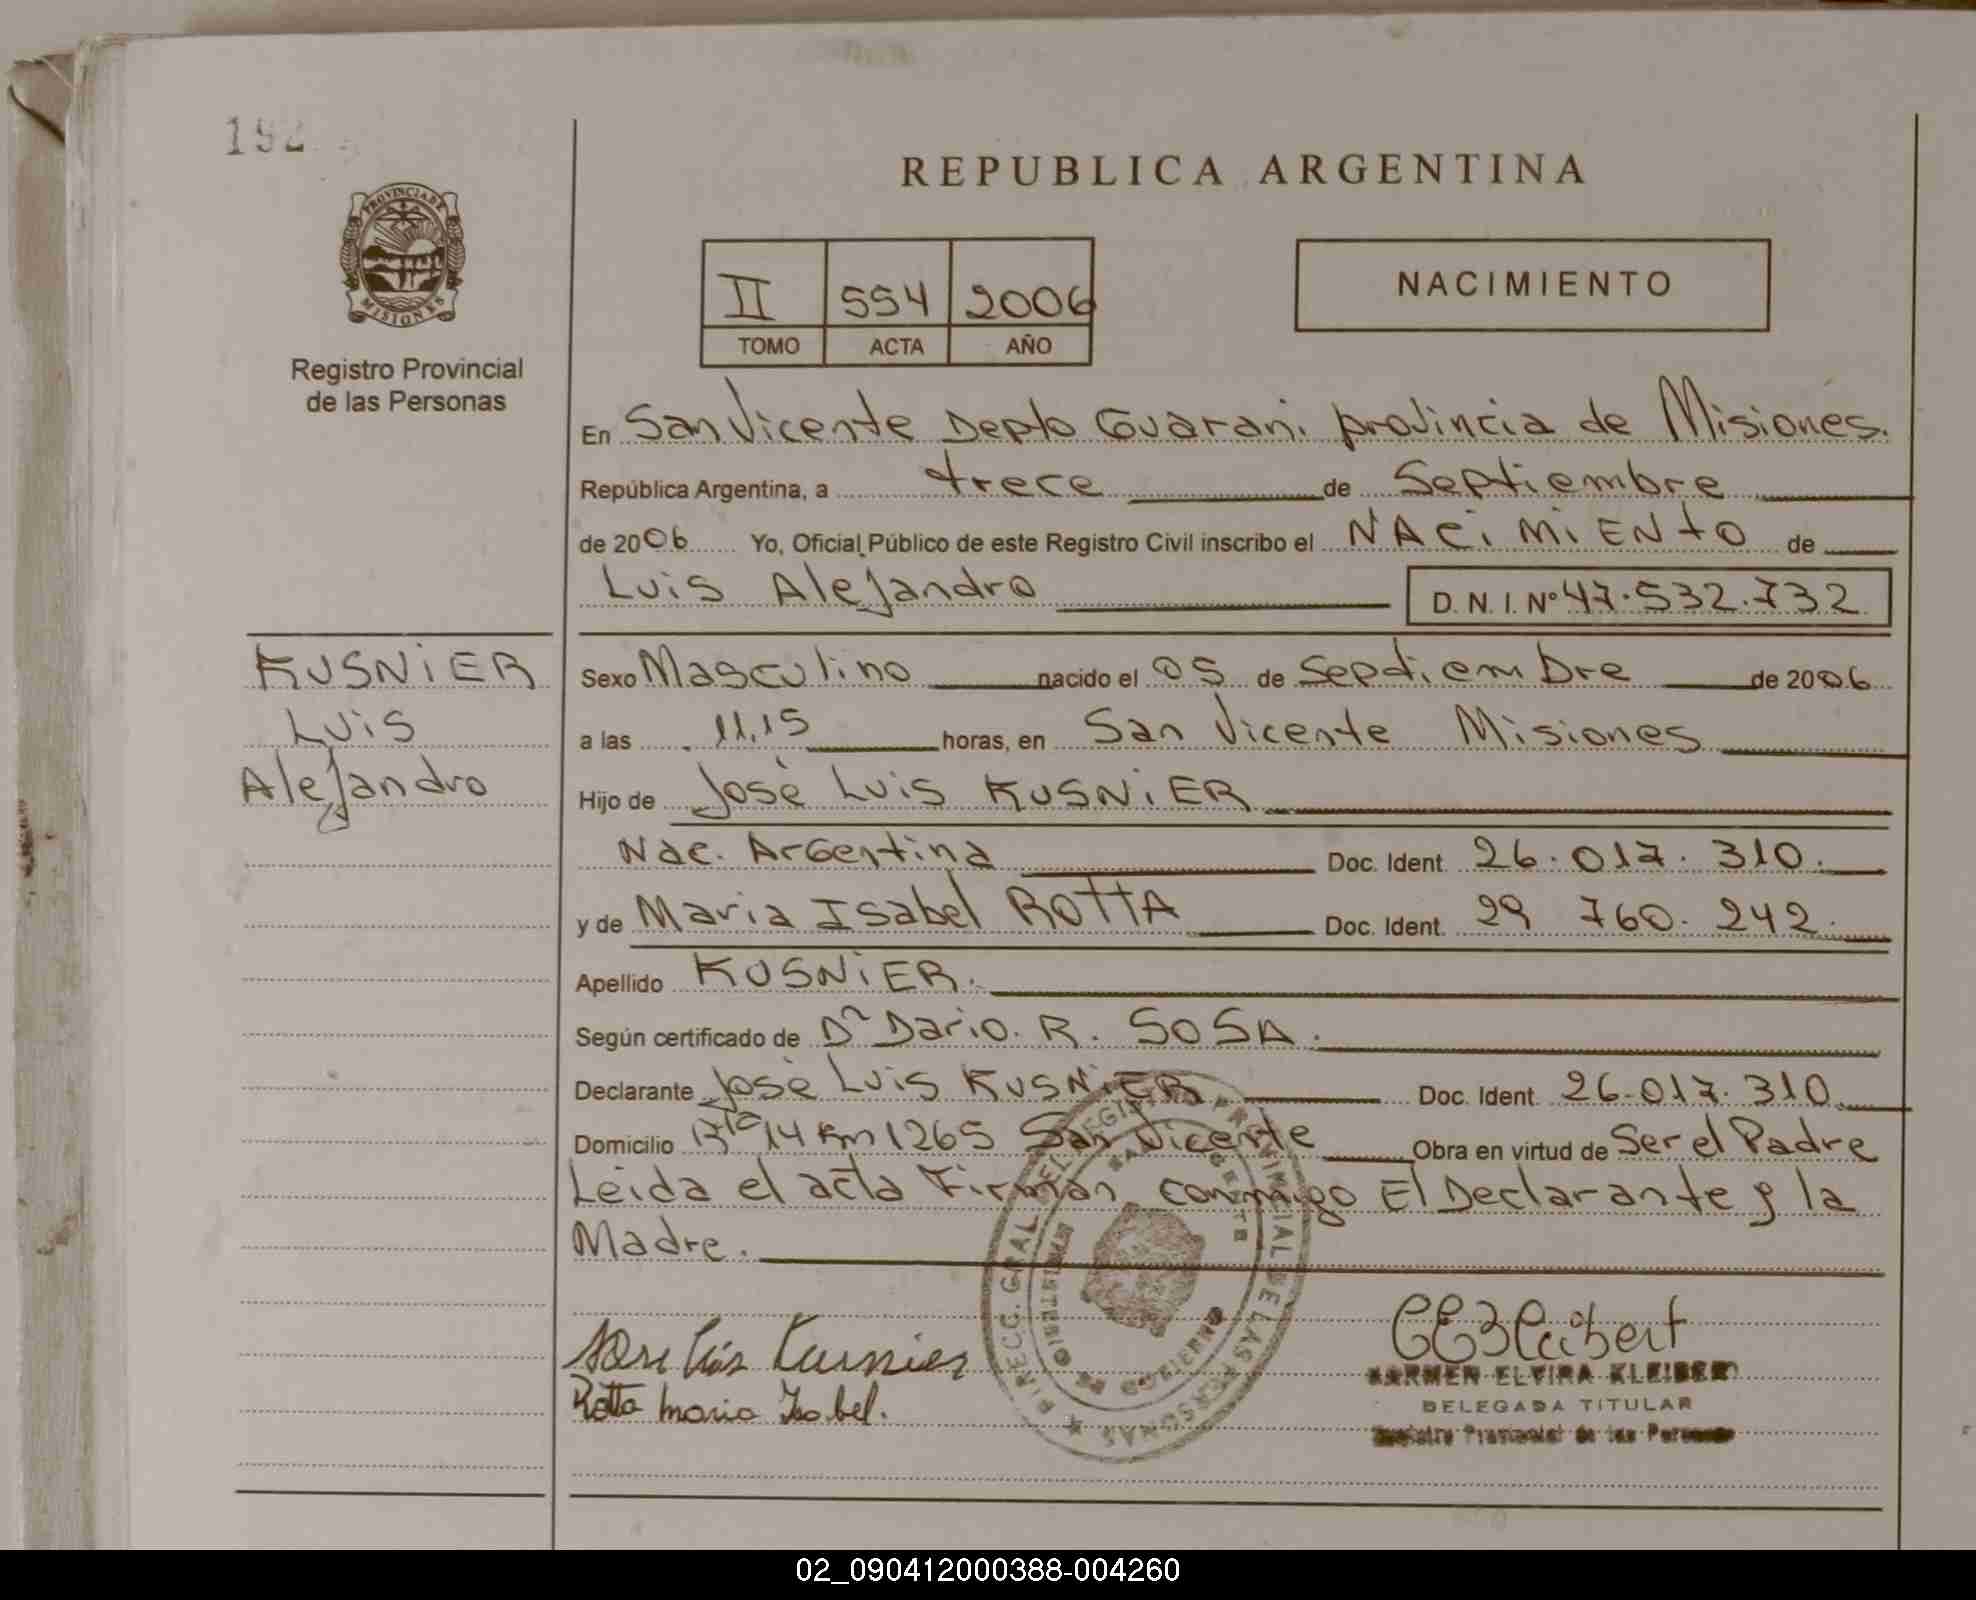 192
REPUBLICA ARGENTINA
PROVINCIA DE
MISIONES
Registro Provincial
de las Personas
II 554 2006
TOMO ACTA AÑO
NACIMIENTO
En San Vicente Depto Guarani. provincia de Misiones.
República Argentina, a trece de Septiembre
de 2006 Yo, Oficial Público de este Registro Civil inscribo el NACiMiENtO de
Luis Alejandro D. N. I. Nº 47.532.732
KUSNiER
Luis
Alejandro
Sexo Masculino nacido el 05 de Septiembre de 2006
a las 11,15 horas, en San Vicente Misiones
Hijo de José Luis KUSNiER
Nac. Argentina Doc. Ident. 26.017.310.
y de Maria Isabel ROttA Doc. Ident. 29 760.242.
Apellido KUSNiER.
Según certificado de Dr Dario. R. SOSA.
Declarante José Luis KUSNiER Doc. Ident. 26.017.310
Domicilio Rta 14 Km 1265 San Vicente Obra en virtud de Ser el Padre
Leida el acta Firman conmigo El Declarante y la
Madre.
DIRECC. GRAL. DEL REGISTRO PROVINCIAL DE LAS PERSONAS
SAN VICENTE
Jose Luis Kusnier
Rotta Maria Isabel.
KARMEN ELVIRA KLEIBER
DELEGADA TITULAR
Registro Provincial de las Personas
02_090412000388-004260